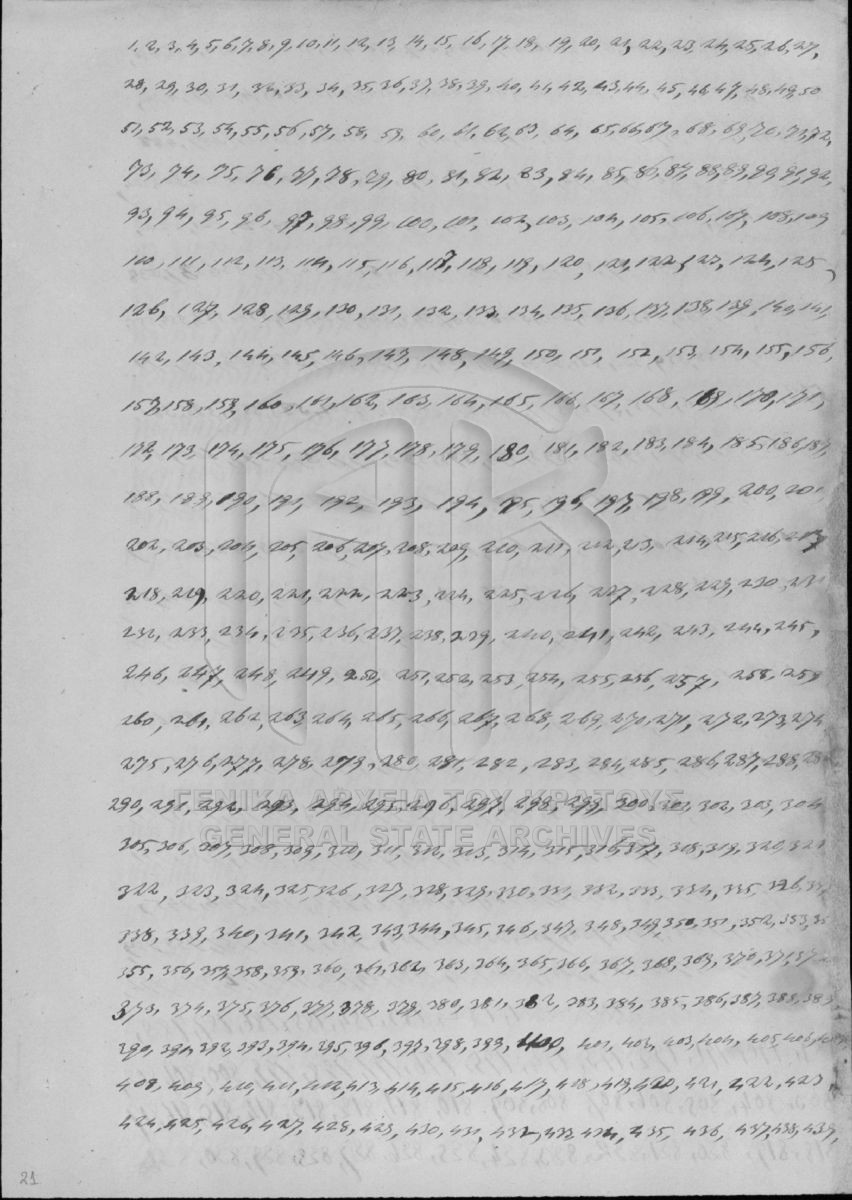 1, 2, 3, 4, 5, 6, 7, 8, 9, 10, 11, 12, 13, 14, 15, 16, 17, 18, 19, 20, 21, 22, 23, 24, 25, 26, 27,
28, 29, 30, 31, 32, 33, 34, 35, 36, 37, 38, 39, 40, 41, 42, 43, 44, 45, 46, 47, 48, 49, 50
51, 52, 53, 54, 55, 56, 57, 58, 59, 60, 61, 62, 63, 64, 65, 66, 67, 68, 69, 70, 71, 72,
73, 74, 75, 76, 77, 78, 79, 80, 81, 82, 83, 84, 85, 86, 87, 88, 89, 90, 91, 92,
93, 94, 95, 96, 97, 98, 99, 100, 101, 102, 103, 104, 105, 106, 107, 108, 109
110, 111, 112, 113, 114, 115, 116, 117, 118, 119, 120, 121, 122, 123, 124, 125,
126, 127, 128, 129, 130, 131, 132, 133, 134, 135, 136, 137, 138, 139, 140, 141,
142, 143, 144, 145, 146, 147, 148, 149, 150, 151, 152, 153, 154, 155, 156,
157, 158, 159, 160, 161, 162, 163, 164, 165, 166, 167, 168, 169, 170, 171,
172, 173, 174, 175, 176, 177, 178, 179, 180, 181, 182, 183, 184, 185, 186, 187,
188, 189, 190, 191, 192, 193, 194, 195, 196, 197, 198, 199, 200, 201
202, 203, 204, 205, 206, 207, 208, 209, 210, 211, 212, 213, 214, 215, 216, 217
218, 219, 220, 221, 222, 223, 224, 225, 226, 227, 228, 229, 230, 231
232, 233, 234, 235, 236, 237, 238, 239, 240, 241, 242, 243, 244, 245,
246, 247, 248, 249, 250, 251, 252, 253, 254, 255, 256, 257, 258, 259
260, 261, 262, 263, 264, 265, 266, 267, 268, 269, 270, 271, 272, 273, 274
275, 276, 277, 278, 279, 280, 281, 282, 283, 284, 285, 286, 287, 288, 289
ΓΕΝΙΚΑ ΑΡΧΕΙΑ ΤΟΥ ΚΡΑΤΟΥΣ
290, 291, 292, 293, 294, 295, 296, 297, 298, 299, 300, 301, 302, 303, 304
GENERAL STATE ARCHIVES
305, 306, 307, 308, 309, 310, 311, 312, 313, 314, 315, 316, 317, 318, 319, 320, 321
322, 323, 324, 325, 326, 327, 328, 329, 330, 331, 332, 333, 334, 335, 336, 337
338, 339, 340, 341, 342, 343, 344, 345, 346, 347, 348, 349, 350, 351, 352, 353, 35
355, 356, 357, 358, 359, 360, 361, 362, 363, 364, 365, 366, 367, 368, 369, 370, 371, 37
373, 374, 375, 376, 377, 378, 379, 380, 381, 382, 383, 384, 385, 386, 387, 388, 389
390, 391, 392, 393, 394, 395, 396, 397, 398, 399, 400, 401, 402, 403, 404, 405, 406, 407
408, 409, 410, 411, 412, 413, 414, 415, 416, 417, 418, 419, 420, 421, 422, 423,
424, 425, 426, 427, 428, 429, 430, 431, 432, 433, 434, 435, 436, 437, 438, 439,
21